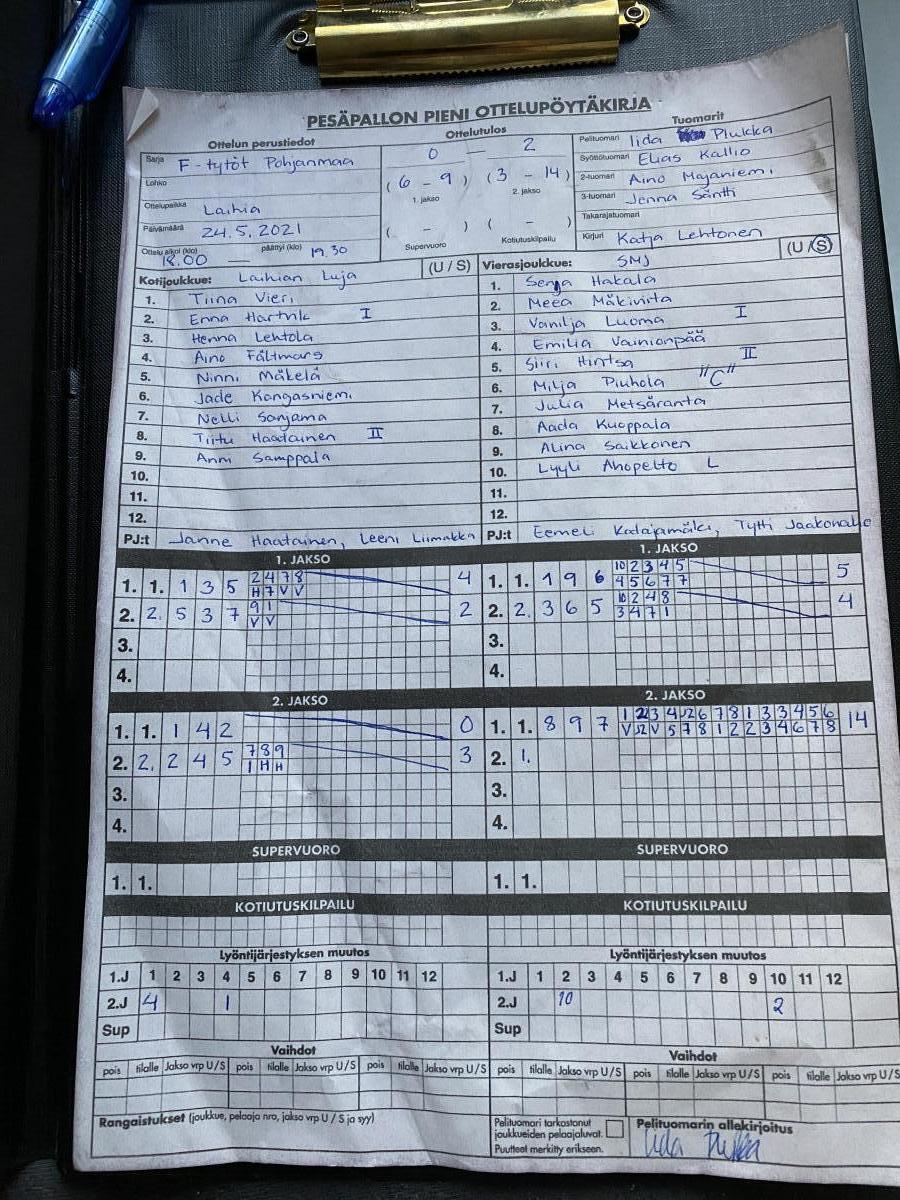 PESÄPALLON PIENI OTTELUPÖYTÄKIRJA
Ottelun perustiedot
Ottelutulos
Tuomarit
Sarja F-tytöt Pohjanmaa
Lohko
Ottelupaikka Laihia
Päivämäärä 24.5.2021
Ottelu alkoi (klo) 18.00 — päättyi (klo) 19.30
0 — 2
(6 - 9) (3 - 14)
1. jakso 2. jakso
( - ) ( - )
Supervuoro Kotiutuskilpailu
Pelituomari Iida Plukka
Syöttötuomari Elias Kallio
2-tuomari Aino Majaniemi
3-tuomari Jenna Säntti
Takarajatuomari
Kirjuri Katja Lehtonen
Kotijoukkue: Laihian Luja (U / S)
1. Tiina Vieri
2. Enna Hartvik I
3. Henna Lehtola
4. Aino Fältmars
5. Ninni Mäkelä
6. Jade Kangasniemi
7. Nelli Sanjama
8. Tiitu Haatainen II
9. Anni Samppala
10.
11.
12.
PJ:t Janne Haatainen, Leeni Liimakka
Vierasjoukkue: SMJ (U / S)
1. Senja Hakala
2. Meea Mäkivirta
3. Vanilja Luoma I
4. Emilia Vainionpää
5. Siiri Hintsa II
6. Milja Piuhola "C"
7. Julia Metsäranta
8. Aada Kuoppala
9. Alina Saikkonen
10. Lyyli Ahopelto L
11.
12.
PJ:t Eemeli Katajamäki, Tytti Jaakonaho
1. JAKSO
1. 1. 1 3 5 2 4 7 8 4
H 7 V V
2. 2. 5 3 7 9 1 2
V V
3.
4.
1. JAKSO
1. 1. 1 9 6 10 2 3 4 5 5
4 5 6 7 7
2. 2. 3 6 5 10 2 4 8 4
3 4 7 1
3.
4.
2. JAKSO
1. 1. 1 4 2 0
2. 2. 2 4 5 7 8 9 3
1 H H
3.
4.
2. JAKSO
1. 1. 8 9 7 14
2. 1.
3.
4.
SUPERVUORO
1. 1.
SUPERVUORO
1. 1.
KOTIUTUSKILPAILU
KOTIUTUSKILPAILU
Lyöntijärjestyksen muutos
1.J 1 2 3 4 5 6 7 8 9 10 11 12
2.J 4 1
Sup
Lyöntijärjestyksen muutos
1.J 1 2 3 4 5 6 7 8 9 10 11 12
2.J 10 2
Sup
Vaihdot
pois tilalle Jakso vrp U/S pois tilalle Jakso vrp U/S pois tilalle Jakso vrp U/S
Vaihdot
pois tilalle Jakso vrp U/S pois tilalle Jakso vrp U/S pois tilalle Jakso vrp U/S
Rangaistukset (joukkue, pelaaja nro, jakso vrp U / S ja syy)
Pelituomari tarkastanut
joukkueiden pelaajaluvat.
Puutteet merkitty erikseen.
Pelituomarin allekirjoitus